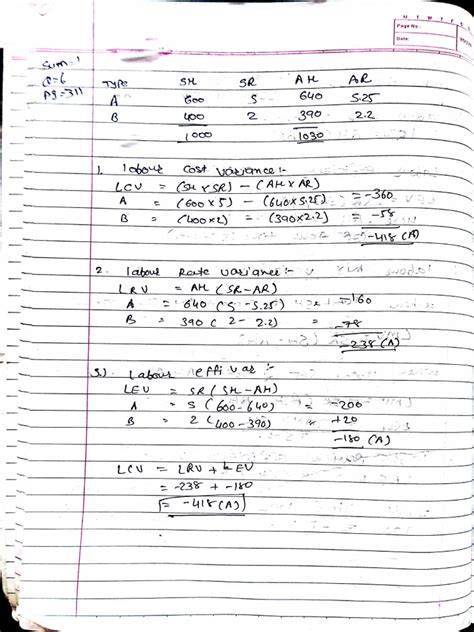 M T W T F S S
Page No.:
Date:
Sum:- 1
Q=6
PG=311
TYPE SH SR AH AR
A 600 5 640 5.25
B 400 2 390 2.2
1000 1030
1. labour cost variance:-
LCV = (SH x SR) - (AH x AR)
A = (600 x 5) - (640 x 5.25) = -360
B = (400 x 2) - (390 x 2.2) = -58
-418 (A)
2. labour Rate variance:-
LRV = AH (SR - AR)
A = 640 (5 - 5.25) = -160
B = 390 (2 - 2.2) = -78
-238 (A)
3.) Labour effi var :-
LEV = SR (SH - AH)
A = 5 (600 - 640) = -200
B = 2 (400 - 390) = +20
-180 (A)
LCV = LRV + LEV
= -238 + -180
= -418 (A)